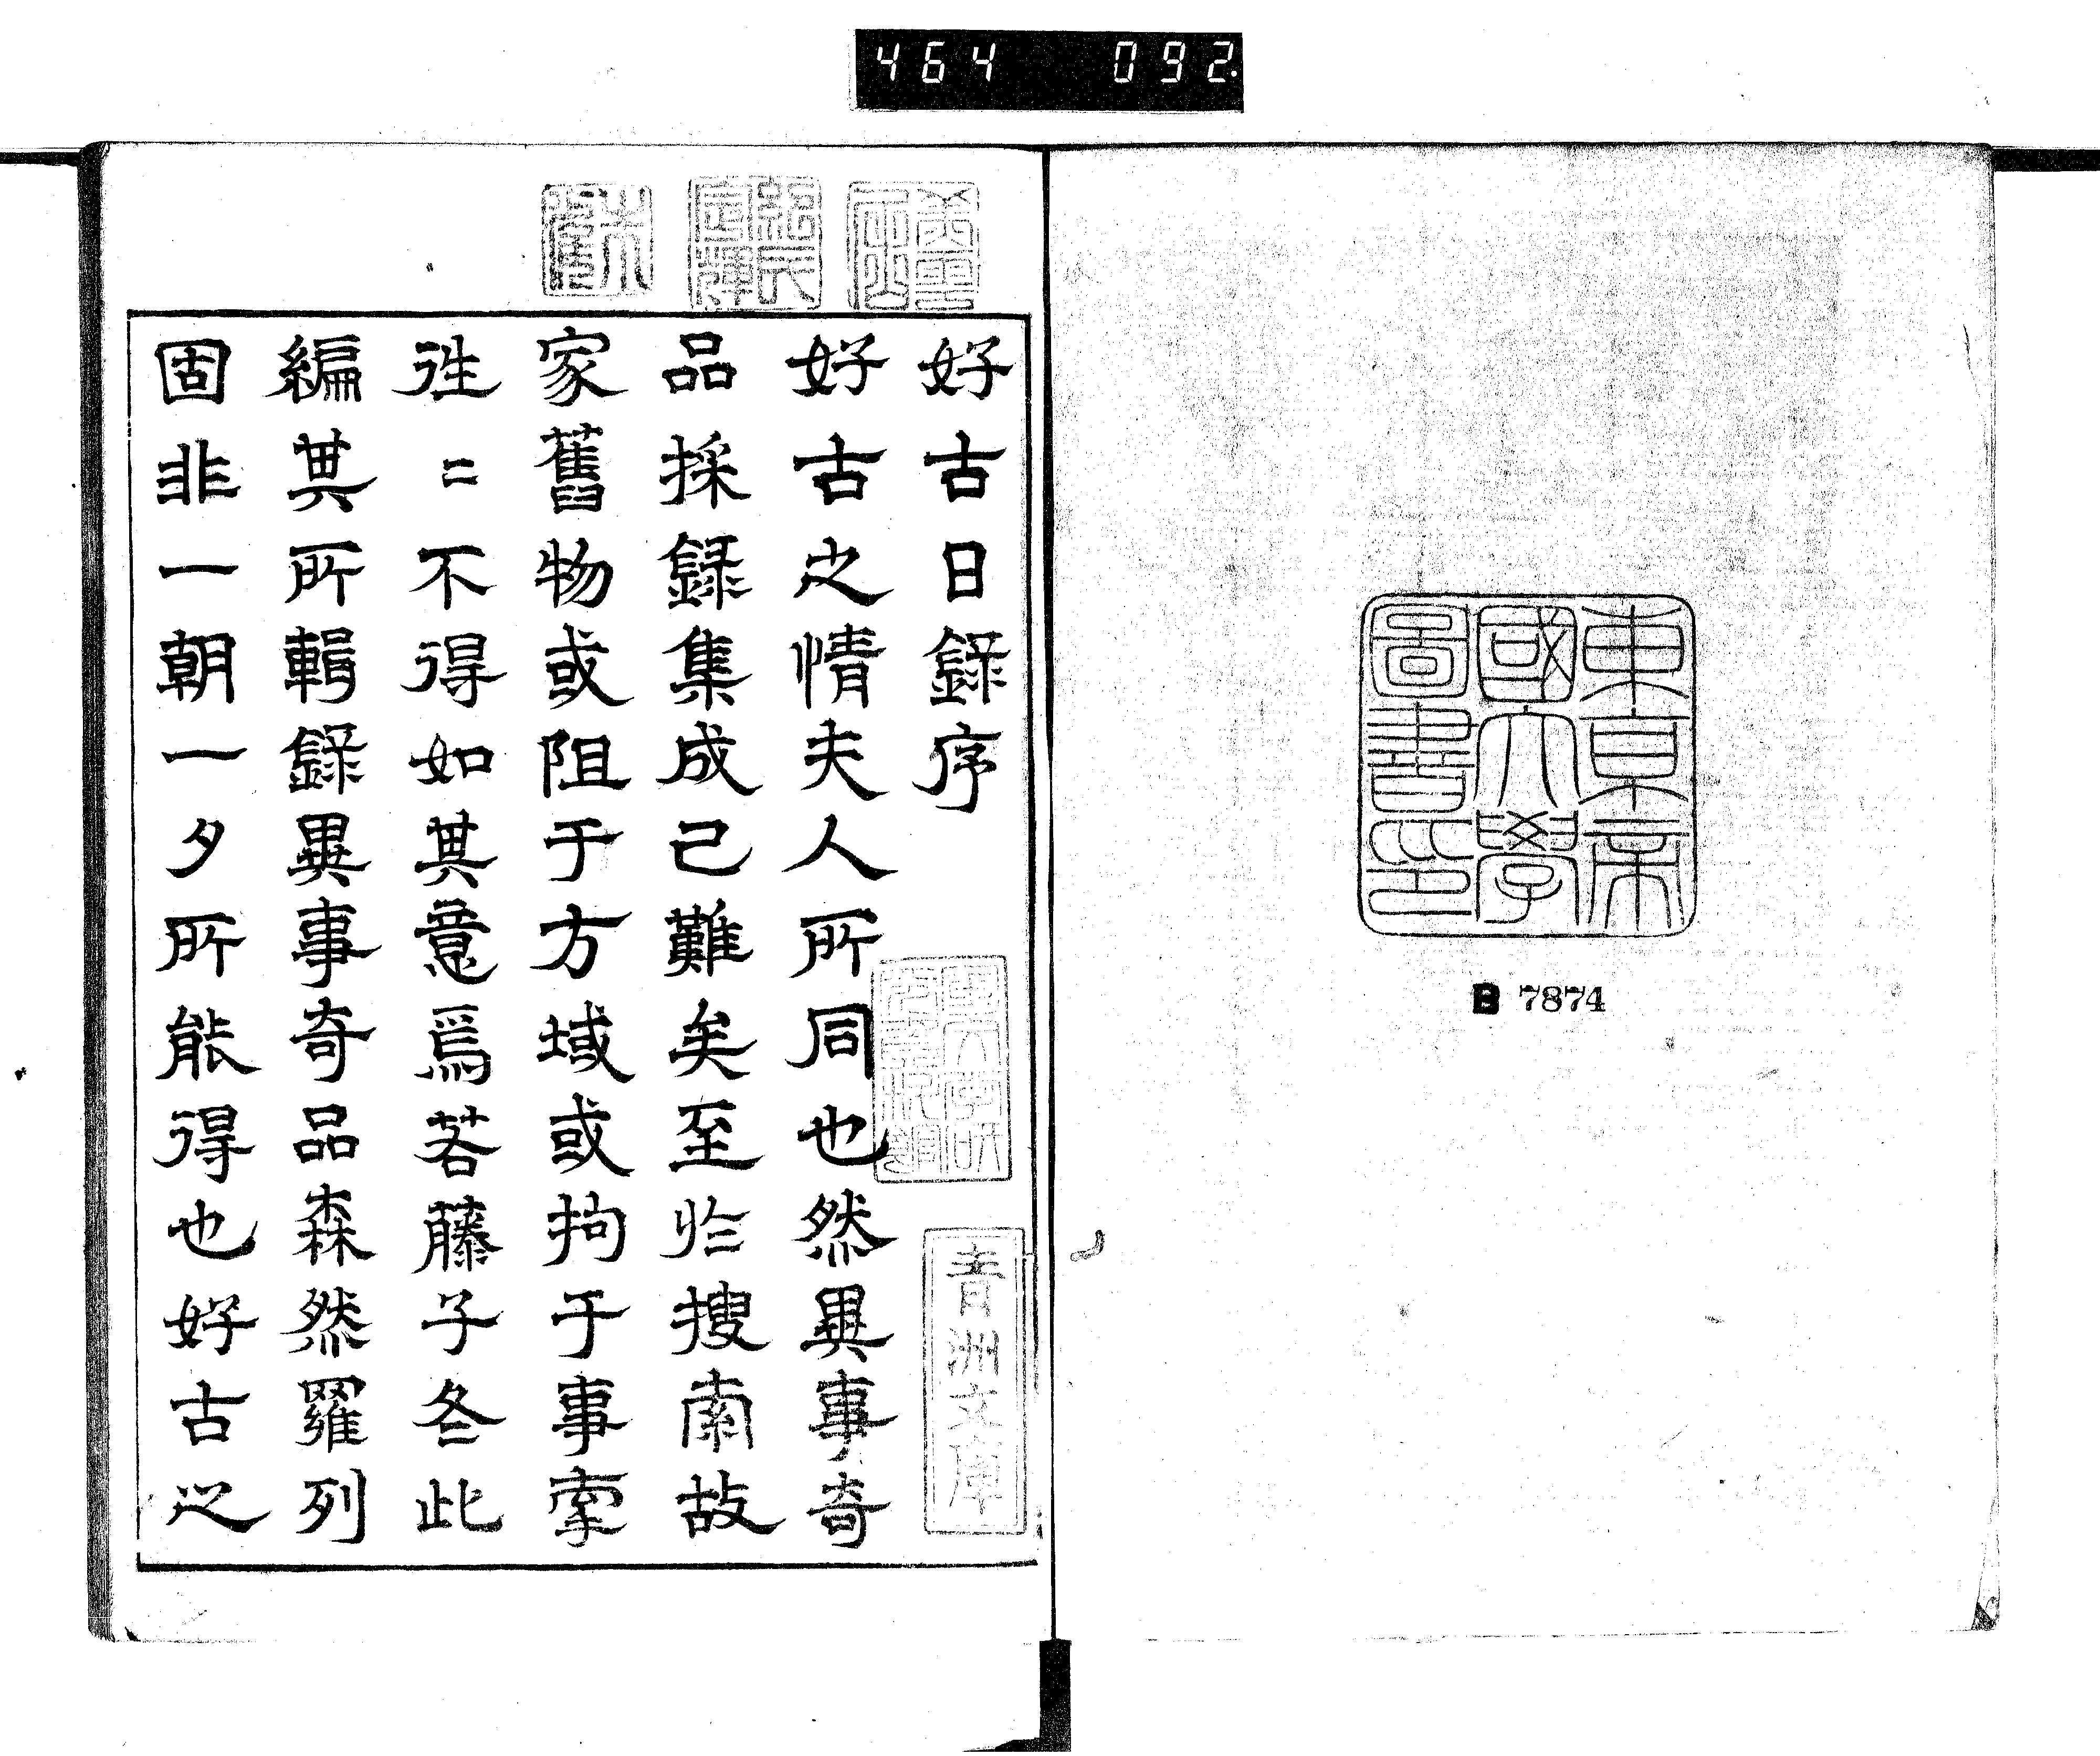 464 092.
東京帝
國大學
圖書印
B 7874
好古日錄序
好古之情夫人所同也然異事奇
品採錄集成已難矣至於搜索故
家舊物或阻于方域或拘于事寠
徃〻不得如其意焉若藤子冬此
編其所輯錄異事奇品森然羅列
固非一朝一夕所能得也好古之
青洲文庫